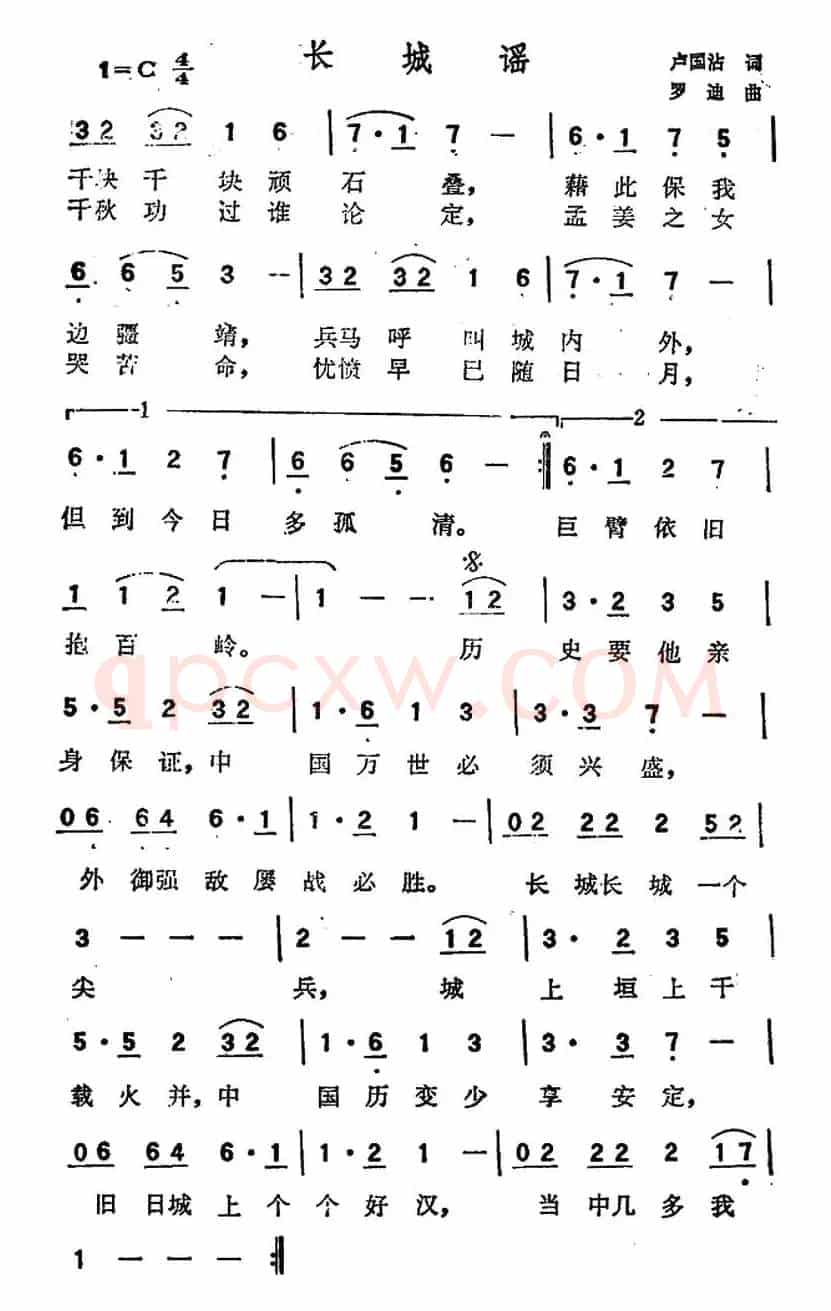 长城谣
1=C 4/4
卢国沾 词
罗迪 曲
32 32 1 6 | 7·1 7 — | 6·1 7 5 |
千块千块顽石叠，藉此保我
千秋功过谁论定，孟姜之女
6 6 5 3 -- | 32 32 1 6 | 7·1 7 — |
边疆靖，兵马呼叫城内外，
哭苦命，忧愤早已随日月，
1 2
6·1 2 7 | 6 6 5 6 — :‖ 6·1 2 7 |
但到今日多孤清。巨臂依旧
1 1 2 1 — | 1 — — 12 | 3·2 3 5 |
抱百岭。历史要他亲
qpcxw.COM
5·5 2 32 | 1·6 1 3 | 3·3 7 — |
身保证，中国万世必须兴盛，
06 64 6·1 | 1·2 1 — | 02 22 2 52 |
外御强敌屡战必胜。长城长城一个
3 — — — | 2 — — 12 | 3· 2 3 5 |
尖兵，城上垣上千
5·5 2 32 | 1·6 1 3 | 3· 3 7 — |
载火并，中国历变少享安定，
06 64 6·1 | 1·2 1 — | 02 22 2 17 |
旧日城上个个好汉，当中几多我
1 — — — :‖